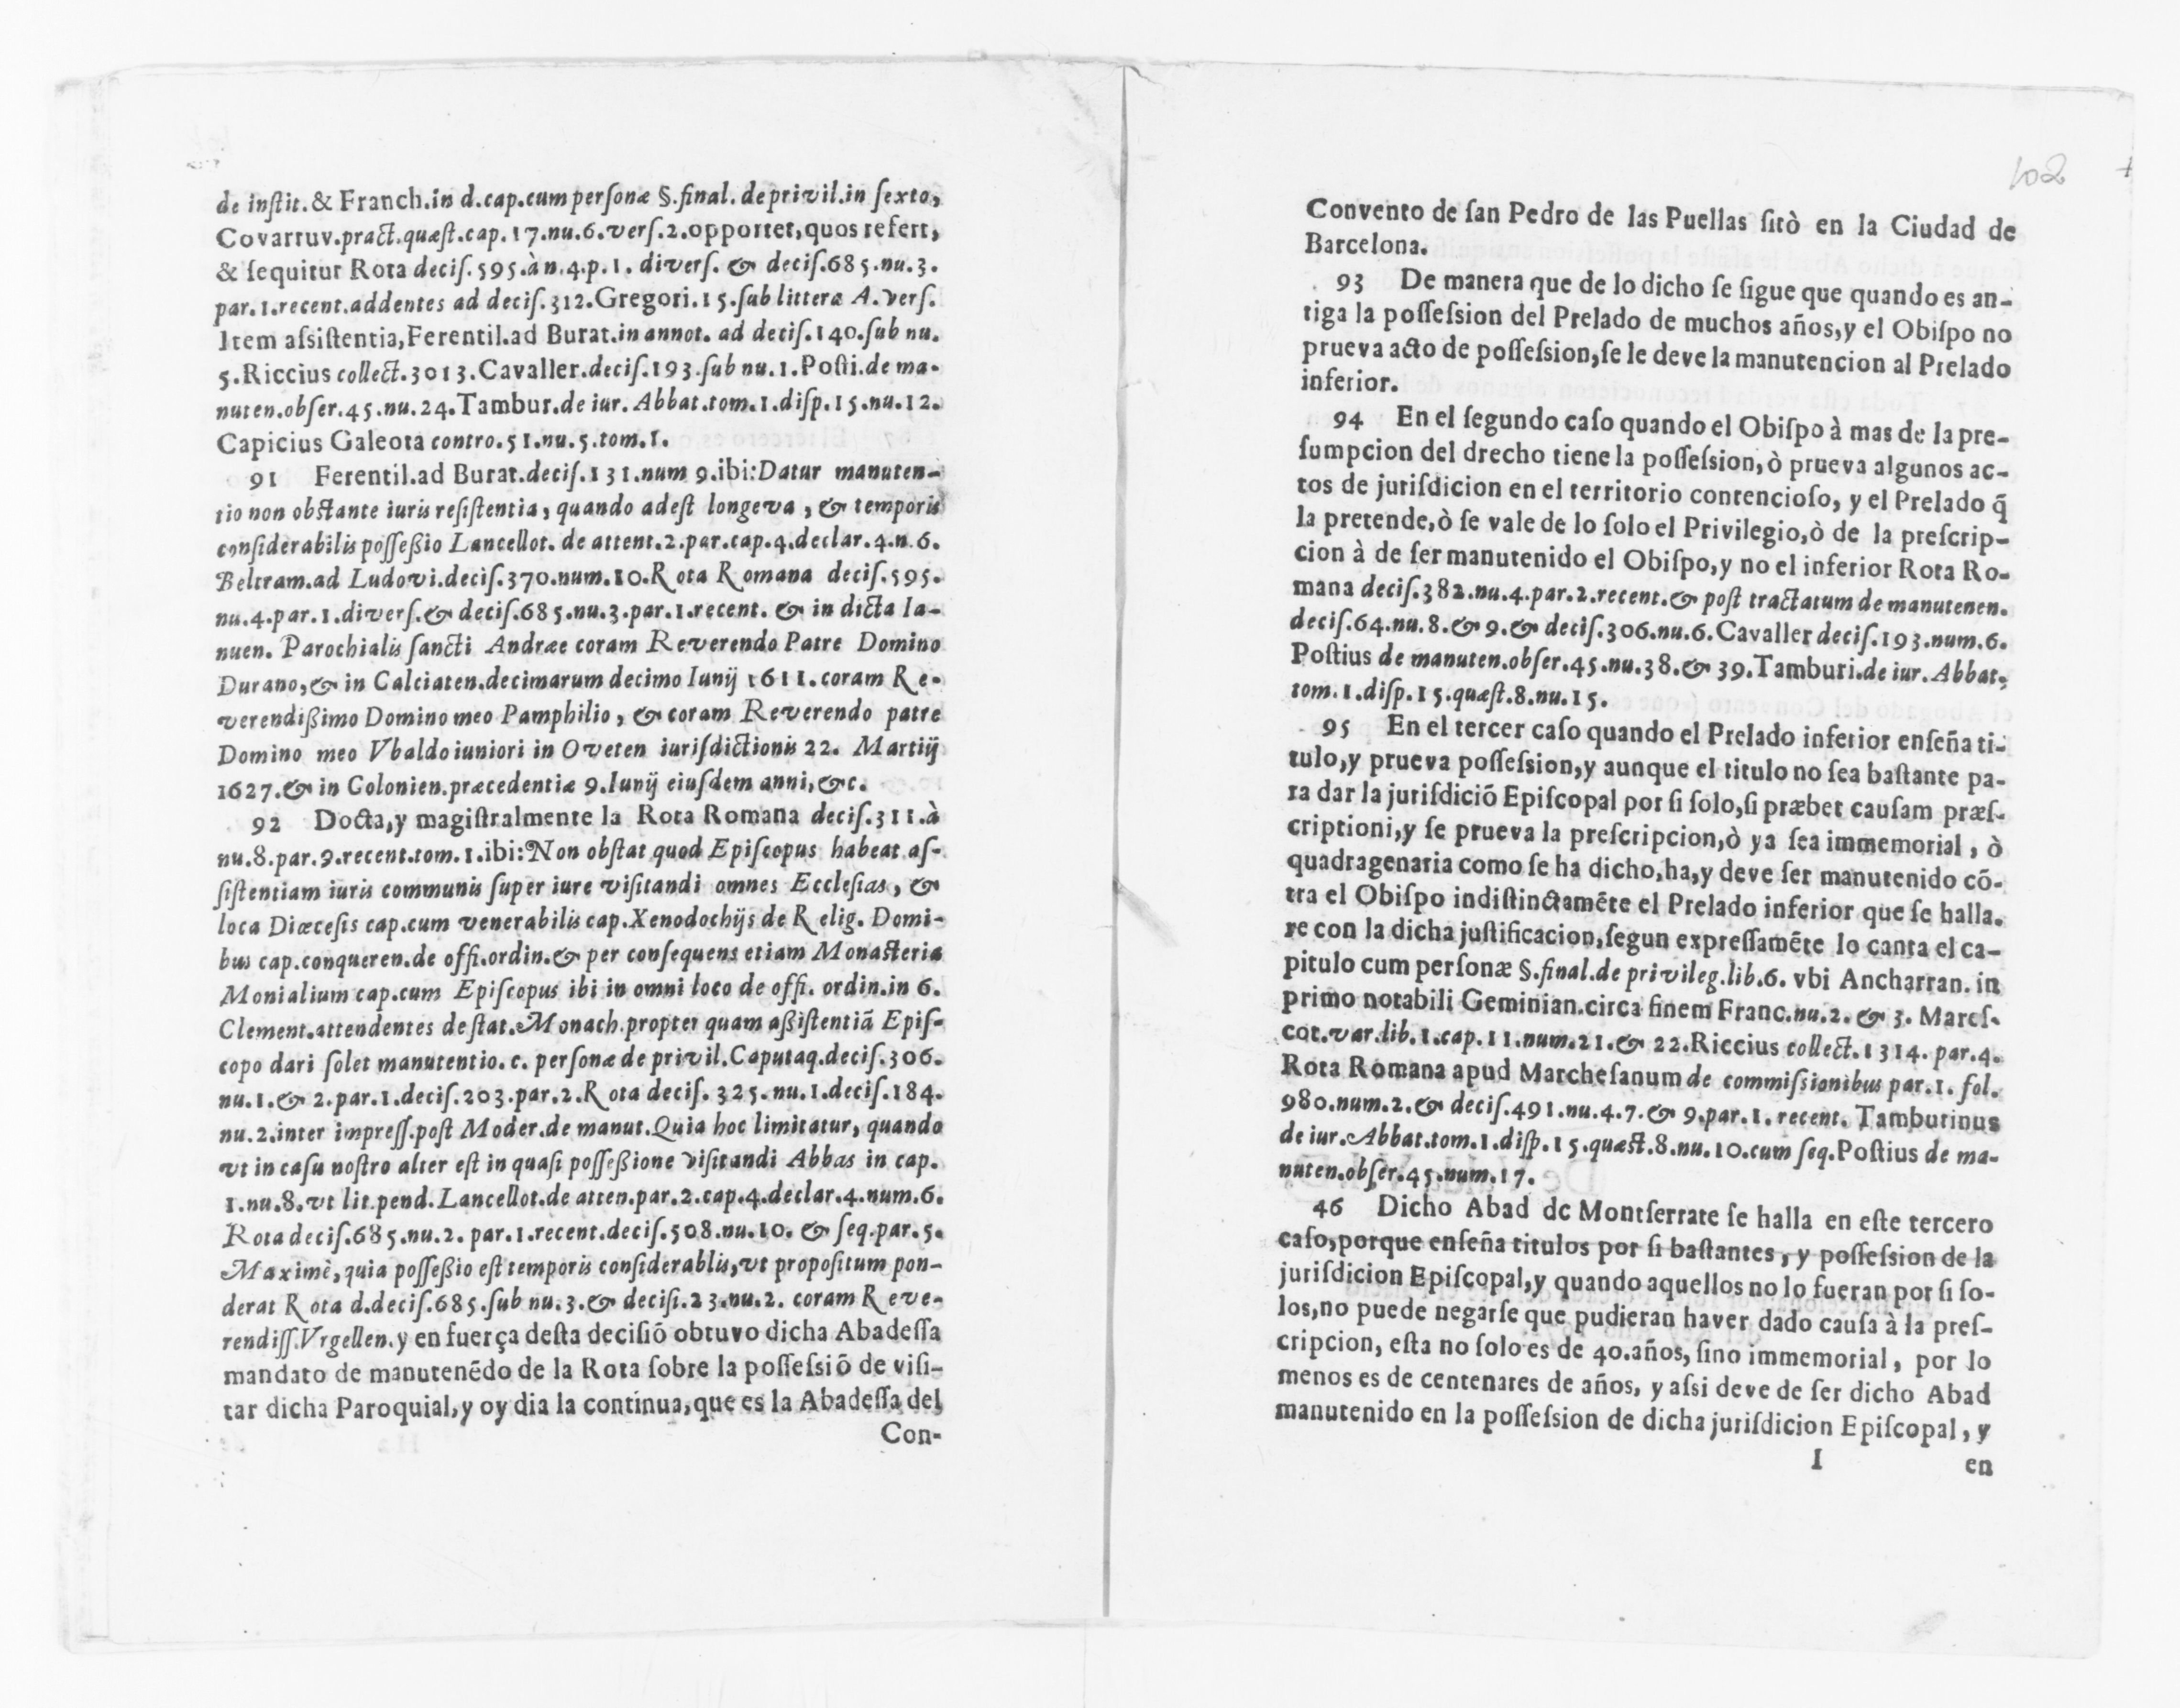 de inſtit.& Franch.in d.cap.cum perſonæ §.final.de privil.in ſexto,
Covarruv.pract.quæſt.cap.17.nu.6.verſ.2.opportet,quos refert,
& ſequitur Rota deciſ.595.à n.4.p.1. diverſ. & deciſ.685.nu.3.
par.1.recent.addentes ad deciſ.312.Gregori.15.ſub littera A.verſ.
Item aſsiſtentia,Ferentil.ad Burat.in annot. ad deciſ.140.ſub nu.
5.Riccius collect.3013.Cavaller.deciſ.193.ſub nu.1.Poſti.de ma-
nuten.obſer.45.nu.24.Tambur.de iur. Abbat.tom.1.diſp.15.nu.12.
Capicius Galeota contro.51.nu.5.tom.1.
91 Ferentil.ad Burat.deciſ.131.num 9.ibi:Datur manuten-
tio non obſtante iuris reſiſtentia, quando adeſt longeva , & temporis
conſiderabilis poſſeßio Lancellot. de attent.2.par.cap.4.declar.4.n.6.
Beltram.ad Ludovi.deciſ.370.num.10.Rota Romana deciſ.595.
nu.4.par.1.diverſ.& deciſ.685.nu.3.par.1.recent. & in dicta Ia-
nuen. Parochialis ſancti Andræe coram Reverendo Patre Domino
Durano,& in Calciaten.decimarum decimo Iunij 1611.coram Re-
verendißimo Domino meo Pamphilio , & coram Reverendo patre
Domino meo Vbaldo iuniori in Oveten iuriſdictionis 22. Martij
1627.& in Colonien.præcedentiæ 9.Iunij eiuſdem anni,&c.
92 Docta,y magiſtralmente la Rota Romana deciſ.311.à
nu.8.par.9.recent.tom.1.ibi:Non obſtat quod Epiſcopus habeat aſ-
ſiſtentiam iuris communis ſuper iure viſitandi omnes Eccleſias, &
loca Diœceſis cap.cum venerabilis cap.Xenodochijs de Relig. Domi-
bus cap.conqueren.de offi.ordin.& per conſequens etiam Monaſteria
Monialium cap.cum Epiſcopus ibi in omni loco de offi. ordin.in 6.
Clement.attendentes de ſtat.Monach.propter quam aßiſtentiā Epiſ-
copo dari ſolet manutentio. c. perſonæ de privil.Caputaq.deciſ.306.
nu.1.& 2.par.1.deciſ.203.par.2.Rota deciſ. 325.nu.1.deciſ.184.
nu.2.inter impreſſ.poſt Moder.de manut.Quia hoc limitatur, quando
vt in caſu noſtro alter eſt in quaſi poſſeßione viſitandi Abbas in cap.
1.nu.8.vt lit.pend.Lancellot.de atten.par.2.cap.4.declar.4.num.6.
Rota deciſ.685.nu.2. par.1.recent.deciſ.508.nu.10. & ſeq.par.5.
Maximè,quia poſſeßio eſt temporis conſiderablis,vt propoſitum pon-
derat Rota d.deciſ.685.ſub nu.3.& deciſi.23.nu.2. coram Reve-
rendiſſ.Vrgellen.y en fuerça deſta deciſiō obtuvo dicha Abadeſſa
mandato de manutenēdo de la Rota ſobre la poſſeſsiō de viſi-
tar dicha Paroquial,y oy dia la continua,que es la Abadeſſa del
Con-
102
Convento de ſan Pedro de las Puellas ſitò en la Ciudad de
Barcelona.
93 De manera que de lo dicho ſe ſigue que quando es an-
tiga la poſſeſsion del Prelado de muchos años,y el Obiſpo no
prueva acto de poſſeſsion,ſe le deve la manutencion al Prelado
inferior.
94 En el ſegundo caſo quando el Obiſpo à mas de la pre-
ſumpcion del drecho tiene la poſſeſsion,ò prueva algunos ac-
tos de juriſdicion en el territorio contencioſo, y el Prelado q̃
la pretende,ò ſe vale de lo ſolo el Privilegio,ò de la preſcrip-
cion à de ſer manutenido el Obiſpo,y no el inferior Rota Ro-
mana deciſ.382.nu.4.par.2.recent.& poſt tractatum de manutenen.
deciſ.64.nu.8.& 9.& deciſ.306.nu.6.Cavaller deciſ.193.num.6.
Poſtius de manuten.obſer.45.nu.38.& 39.Tamburi.de iur. Abbat.
tom.1.diſp.15.quæſt.8.nu.15.
95 En el tercer caſo quando el Prelado inferior enſeña ti-
tulo,y prueva poſſeſsion,y aunque el titulo no ſea baſtante pa-
ra dar la juriſdiciō Epiſcopal por ſi ſolo,ſi præbet cauſam præſ-
criptioni,y ſe prueva la preſcripcion,ò ya ſea immemorial , ò
quadragenaria como ſe ha dicho,ha,y deve ſer manutenido cō-
tra el Obiſpo indiſtinctamēte el Prelado inferior que ſe halla.
re con la dicha juſtificacion,ſegun expreſſamēte lo canta el ca-
pitulo cum perſonæ §.final.de privileg.lib.6. vbi Ancharran. in
primo notabili Geminian.circa finem Franc.nu.2. & 3. Mareſ-
cot.var.lib.1.cap.11.num.21.& 22.Riccius collect.1314. par.4.
Rota Romana apud Marcheſanum de commiſsionibus par.1. fol.
980.num.2.& deciſ.491.nu.4.7.& 9.par.1. recent. Tamburinus
de iur.Abbat.tom.1.diſp.15.quæſt.8.nu.10.cum ſeq.Poſtius de ma-
nuten.obſer.45.num.17.
46 Dicho Abad de Montſerrate ſe halla en eſte tercero
caſo,porque enſeña titulos por ſi baſtantes , y poſſeſsion de la
juriſdicion Epiſcopal,y quando aquellos no lo fueran por ſi ſo-
los,no puede negarſe que pudieran haver dado cauſa à la preſ-
cripcion, eſta no ſolo es de 40.años, ſino immemorial , por lo
menos es de centenares de años, y aſsi deve de ſer dicho Abad
manutenido en la poſſeſsion de dicha juriſdicion Epiſcopal , y
I en